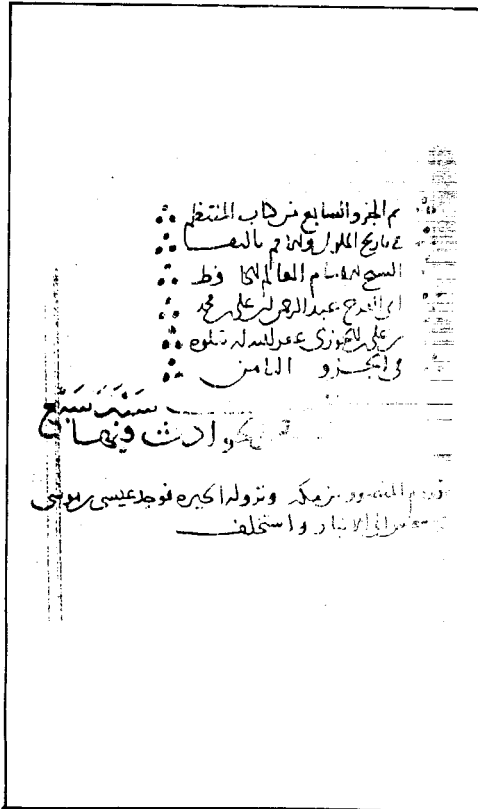 تم الجزو السابع من كتاب المنتظم
في تاريخ الملوك والامم تاليف
الشيخ الامام العالم الحافظ
ابي الفرج عبد الرحمن بن علي بن محمد
بن علي الجوزي غفر الله له يتلوه
في الجزو الثامن
سنة سبع
الحوادث فيها
قدوم المنصور من مكة ونزوله الحيرة فوجد عيسى بن موسى
الى الانبار واستخلف